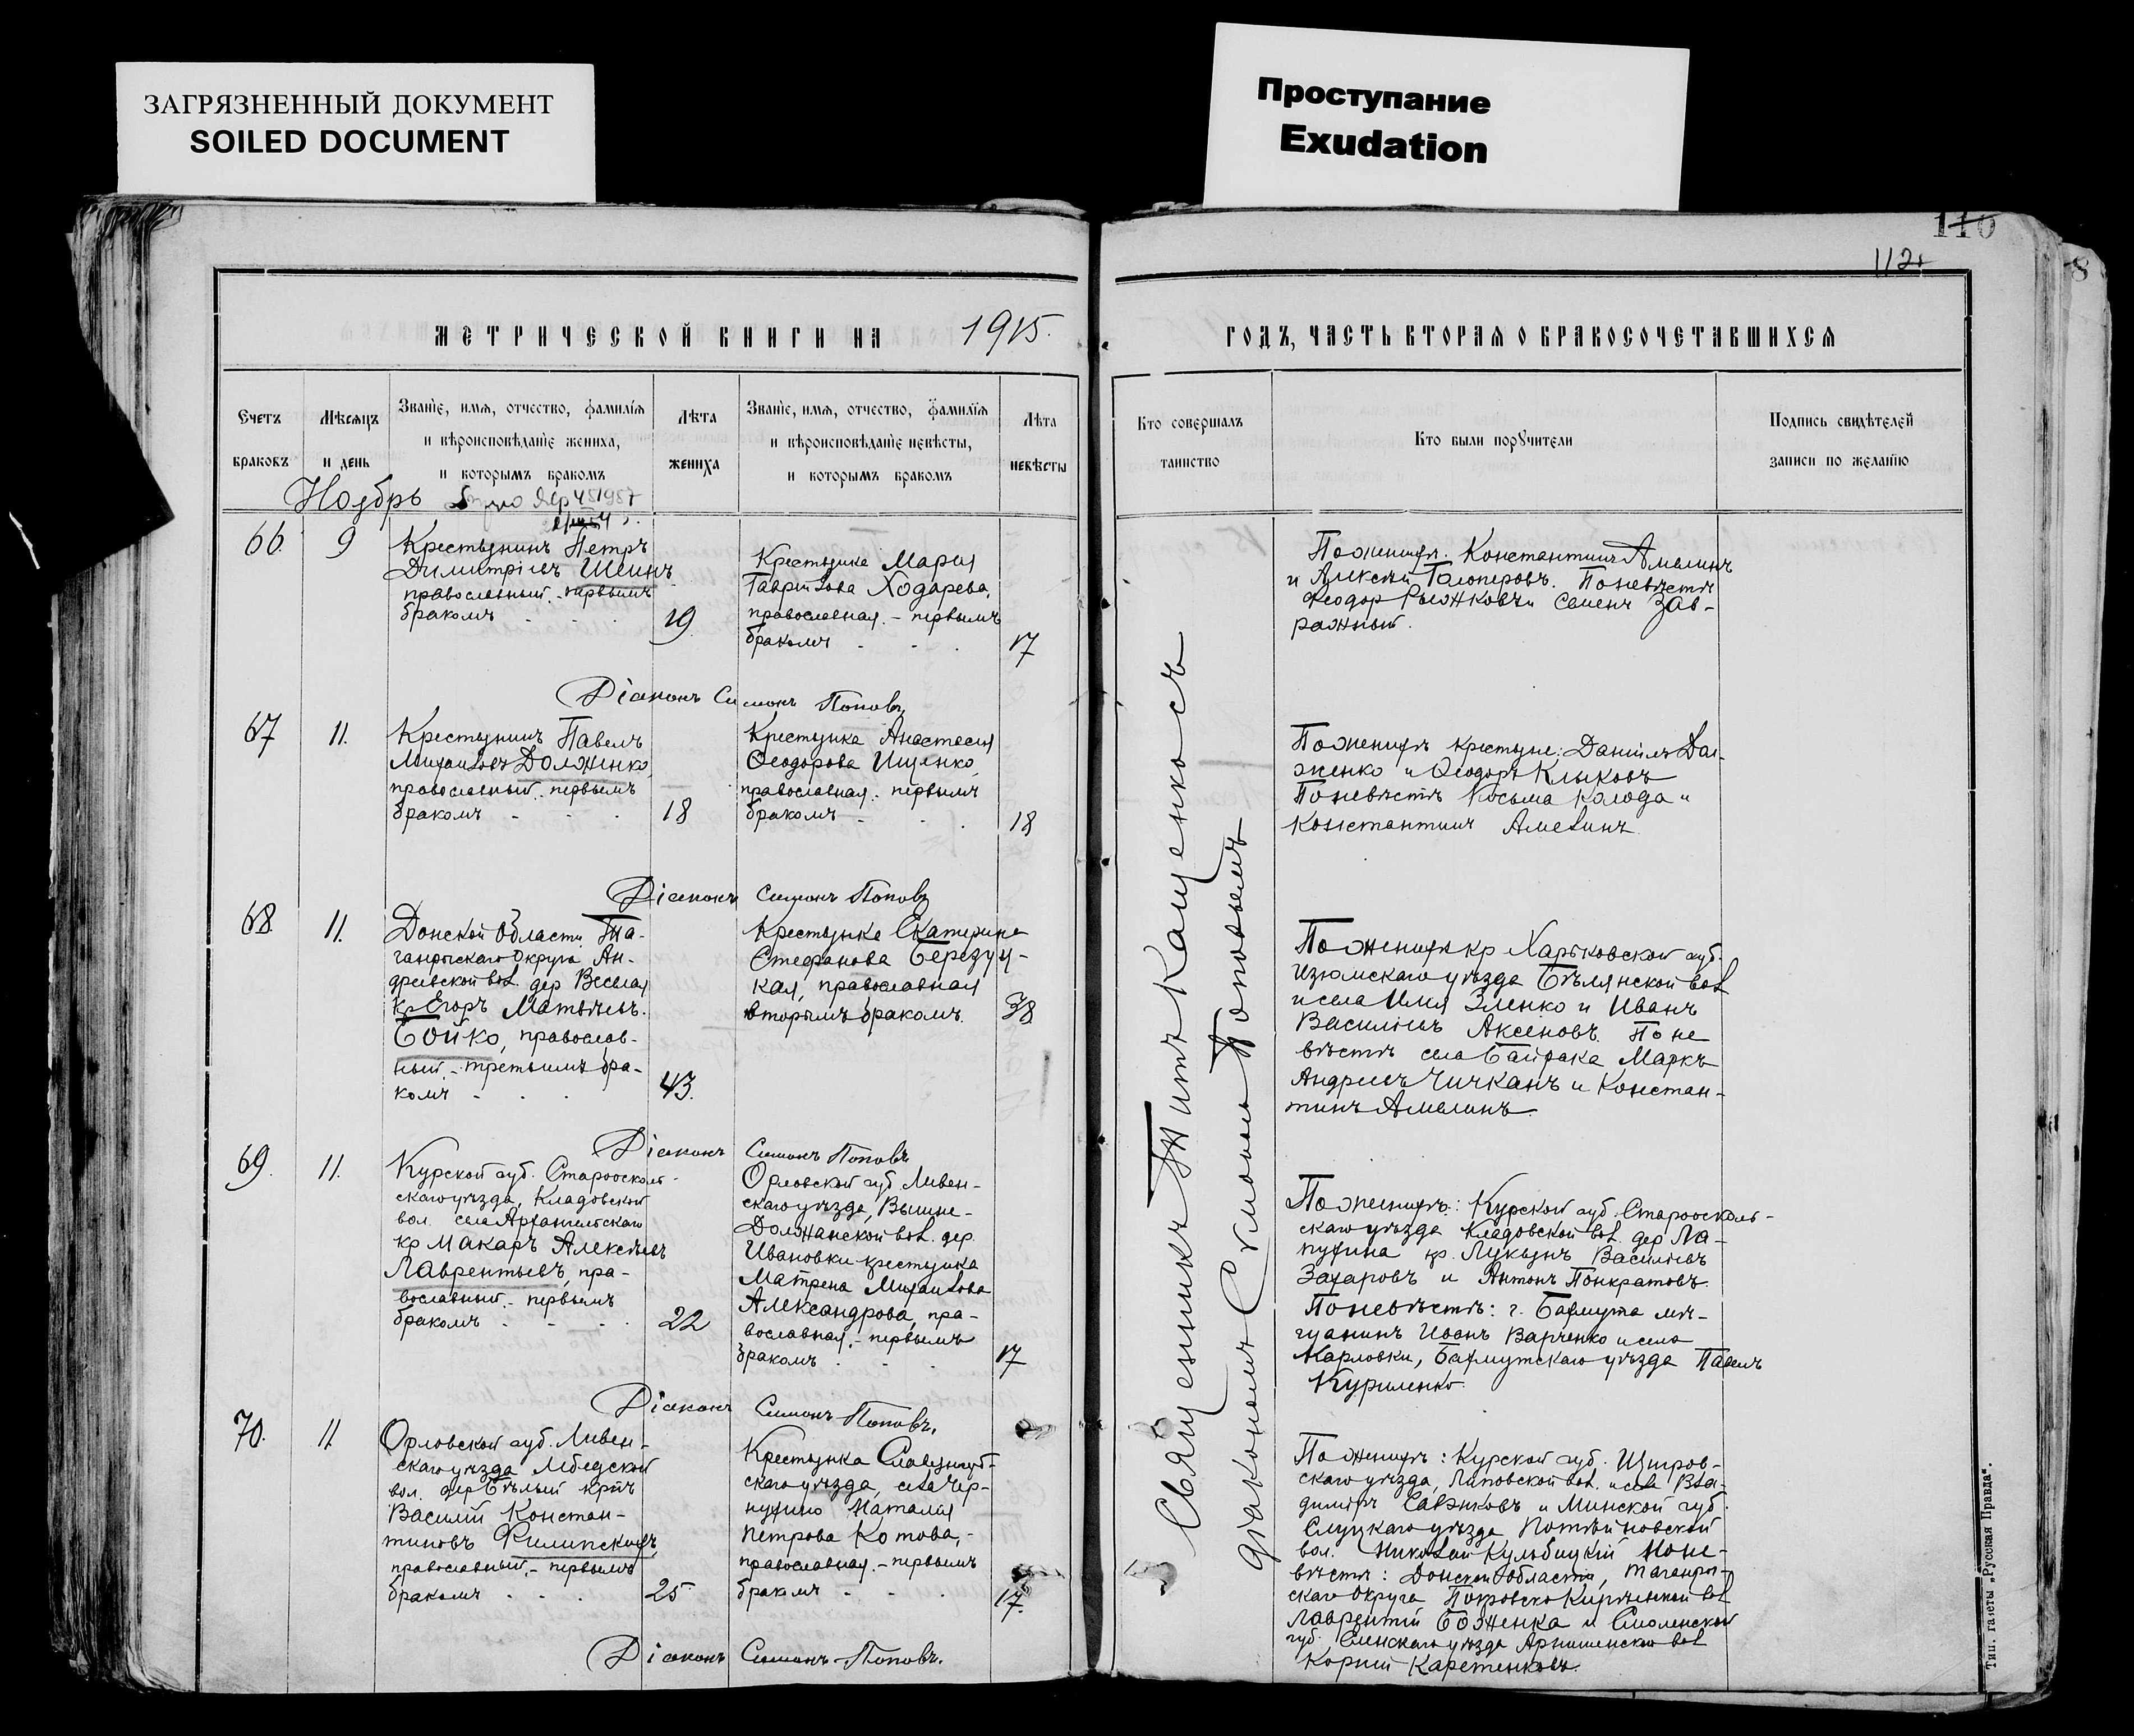 ЗАГРЯЗНЕННЫЙ ДОКУМЕНТ
SOILED DOCUMENT
Проступание
Exudation
110
112
8
МЕТРИЧЕСКОЙ КНИГИ НА 1915.
ГОДЪ, ЧАСТЬ ВТОРАЯ О БРАКОСОЧЕТАВШИХСЯ
Счетъ
браковъ
Мѣсяцъ
и день
Званіе, имя, отчество, фамилія
и вѣроисповѣданіе жениха,
и которымъ бракомъ
Лѣта
жениха
Званіе, имя, отчество, фамилія
и вѣроисповѣданіе невѣсты,
и которымъ бракомъ
Лѣта
невѣсты
Кто совершалъ
таинство
Кто были поручители
Подпись свидѣтелей
записи по желанію
Ноябрь
66.
9
Крестьянинъ Петръ
Димитріевъ Шеинъ
православный. первымъ
бракомъ
19
Крестьянка Марія
Гавріилова Ходарева,
православная. – первымъ
бракомъ
17
По женихѣ. Константинъ Амелинъ
и Алексѣй Голоперовъ. По невѣстѣ
Феодор Рыжковъ и Семенъ Зав-
ражный.
Діаконъ Симонъ Поповъ
67
11.
Крестьянинъ Павелъ
Михаиловъ Долженко,
православный. первымъ
бракомъ
18
Крестьянка Анастасія
Ѳеодорова Ищенко,
православная. первымъ
бракомъ
18
По женихѣ крестьяне: Даніилъ Дол-
женко и Ѳеодоръ Клыковъ
По невѣстѣ Косьма Колода и
Константинъ Амелинъ
Діаконъ Симонъ Поповъ
68.
11.
Донской Области Та-
ганрогскаго Округа Ан-
дреевской вол. дер Веселая
кр Егоръ Матвѣевъ.
Бойко, православ-
ный. – третьимъ бра-
комъ
43.
Крестьянка Екатерина
Стефанова Березуц-
кая, православная
вторымъ бракомъ.
38
По женихѣ кр Харьковской губ.
Изюмскаго уѣзда Бѣлянской вол
и села Илія Зленко и Иванъ
Василіевъ Аксеновъ. По не
вѣстѣ села Байрака Маркъ
Андреевъ Чичканъ и Констан-
тинъ Амелинъ.
Діаконъ Симонъ Поповъ
69.
11.
Курской губ. Староосколь-
скаго уѣзда, Кладовской
вол. села Архангельскаго
кр Макаръ Алексѣевъ
Лаврентьевъ, пра-
вославный. – первымъ
бракомъ
22
Орловской губ. Ливен-
скаго уѣзда, Вышне-
Должанской вол. дер.
Ивановки крестьянка
Матрена Михаилова
Александрова, пра-
вославная. – первымъ
бракомъ
17
По женихѣ: Курской губ. Староосколь-
скаго уѣзда Кладовской вол. дер Ла-
пухина кр. Лукьянъ Василіевъ
Захаровъ и Антонъ Понкратовъ.
По невѣстѣ: г. Бахмута мѣ-
щанинъ Иванъ Варченко и села
Карловки, Бахмутскаго уѣзда Павелъ
Куриленко.
Діаконъ Симонъ Поповъ.
70.
11
Орловской губ. Ливен-
скаго уѣзда
вол. дер Бѣлый крѣ
Василій Констан-
тиновъ Филипскихъ,
православный, – первымъ
бракомъ
25
Крестьянка
скаго уѣзда, села Чер-
нухино Наталія
Петрова Котова,
православная. – первымъ
бракомъ
17.
По женихѣ: Курской губ. Щигров-
скаго уѣзда, Липовской вол. и села Вла-
димиръ и Минской губ.
Слуцкаго уѣзда
вол. Николай Кульбицкій По не-
вѣстѣ: Донской области, Таганрог-
скаго Округа Покровско Кирѣевской вол
Лаврентій Боженка и Смоленской
губ. уѣзда вол
Корній Каретенковъ.
Діаконъ Симонъ Поповъ.
Священникъ Титъ Кащенко съ
діакономъ Симономъ Поповымъ
Тип. газеты „Русская Правда“.